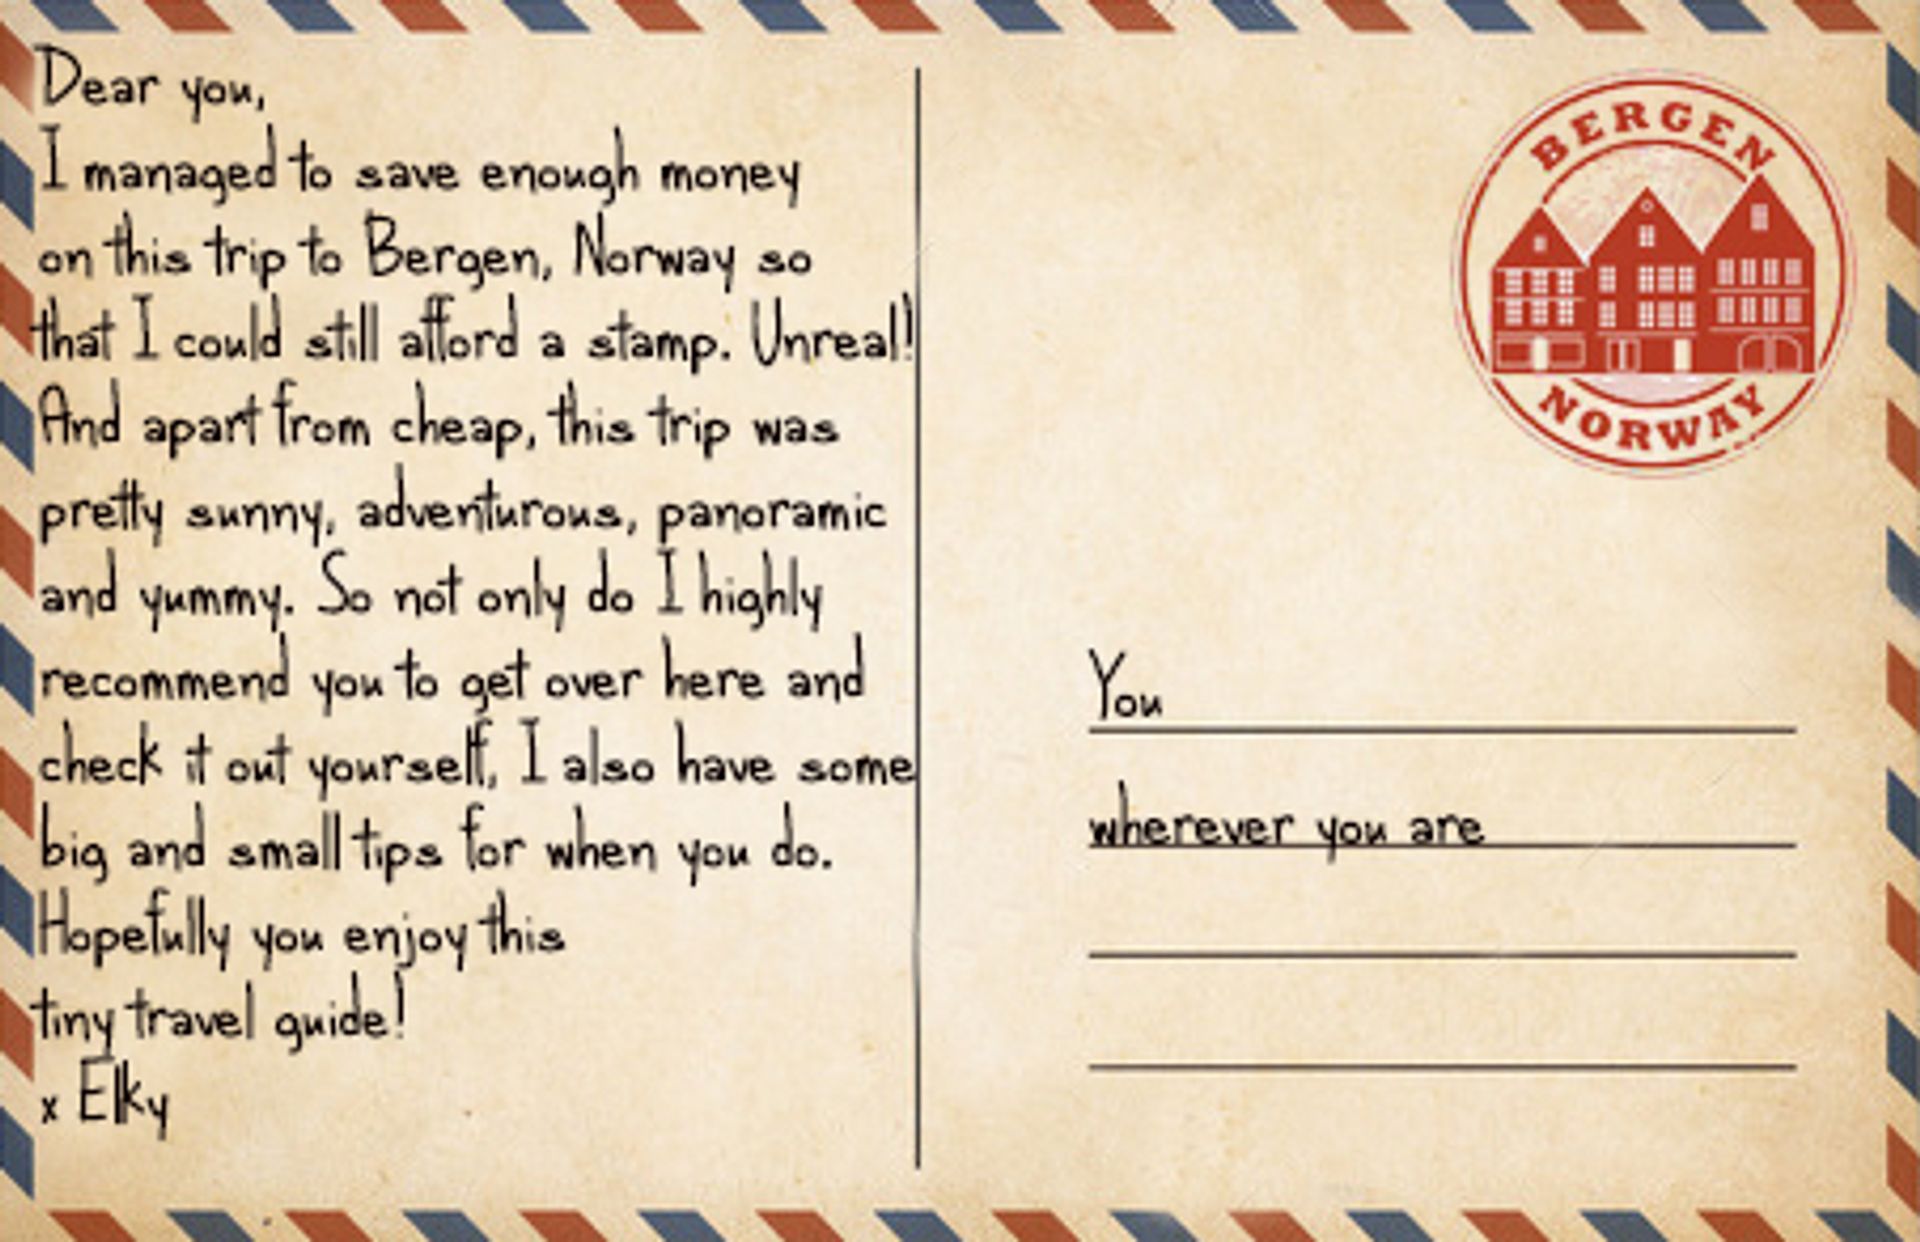 Dear you,
I managed to save enough money
on this trip to Bergen, Norway so
that I could still afford a stamp. Unreal!
And apart from cheap, this trip was
pretty sunny, adventurous, panoramic
and yummy. So not only do I highly
recommend you to get over here and
check it out yourself, I also have some
big and small tips for when you do.
Hopefully you enjoy this
tiny travel guide!
x Elky
BERGEN
NORWAY
You
wherever you are